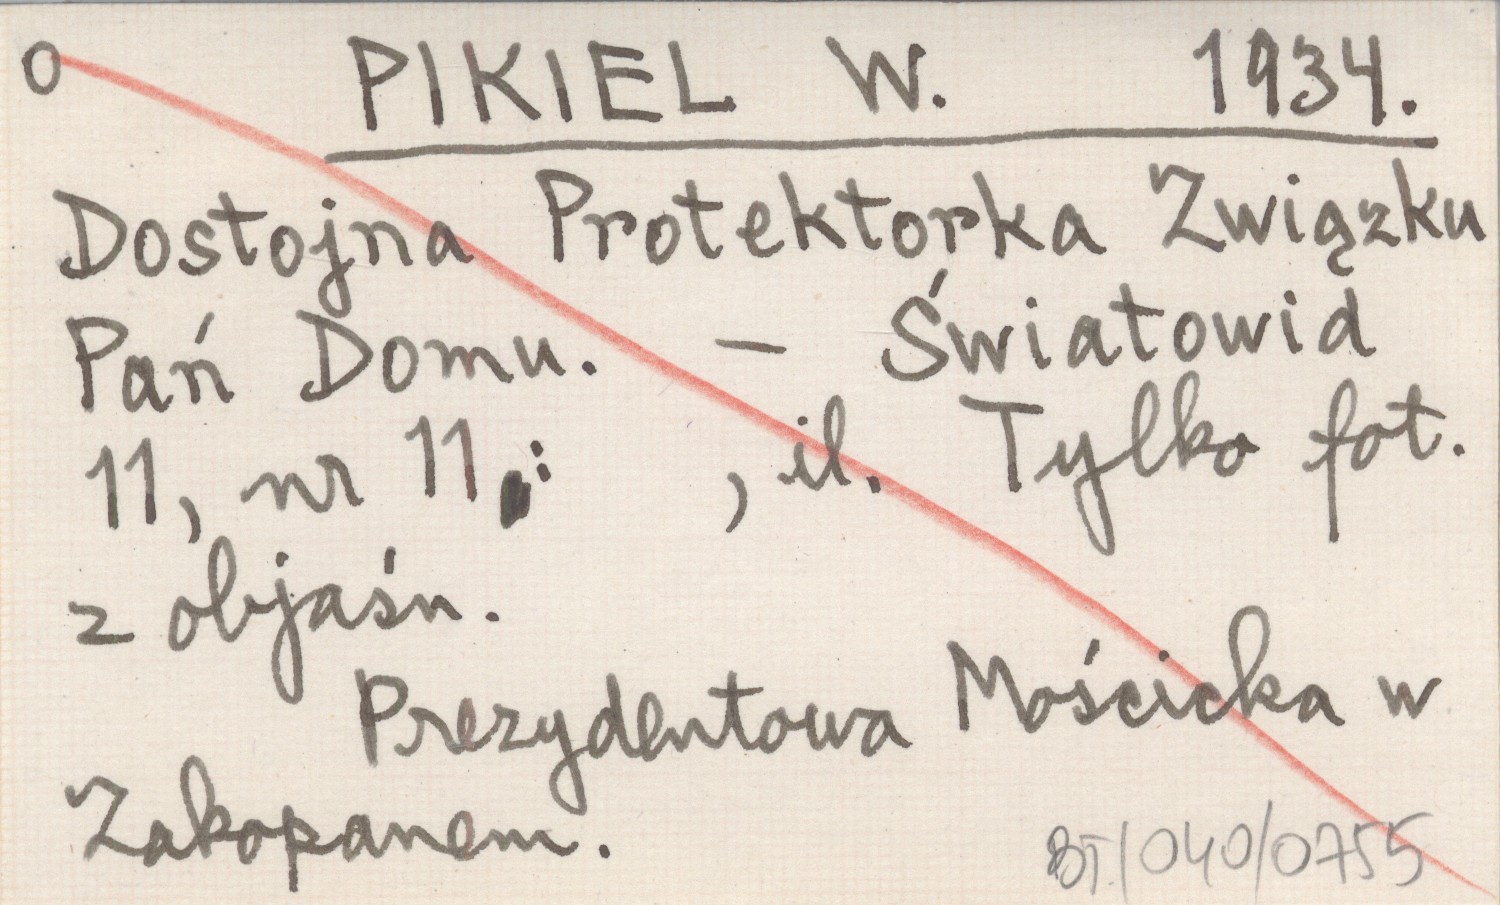 O PIKIEL W. 1934.
Dostojna Protektorka Związku
Pań Domu. — Światowid
11, nr 11 : , il. Tylko fot.
z objaśn.
Prezydentowa Mościcka w
Zakopanem.
BT/040/0755